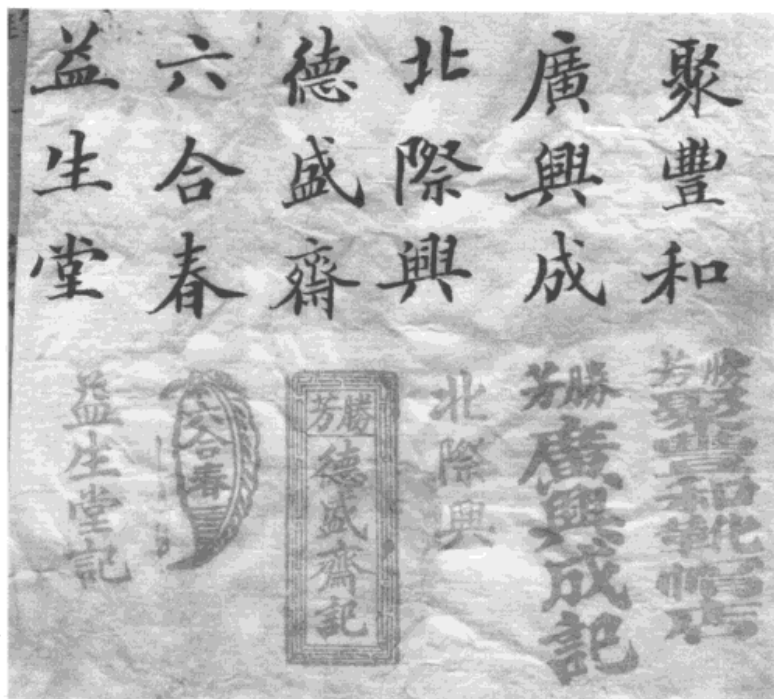 聚豐和
廣興成
北際興
德盛齋
六合春
益生堂
勝芳
聚豐和靴帽店
勝芳
廣興成記
北際興
勝芳
德盛齋記
六合春
益生堂記